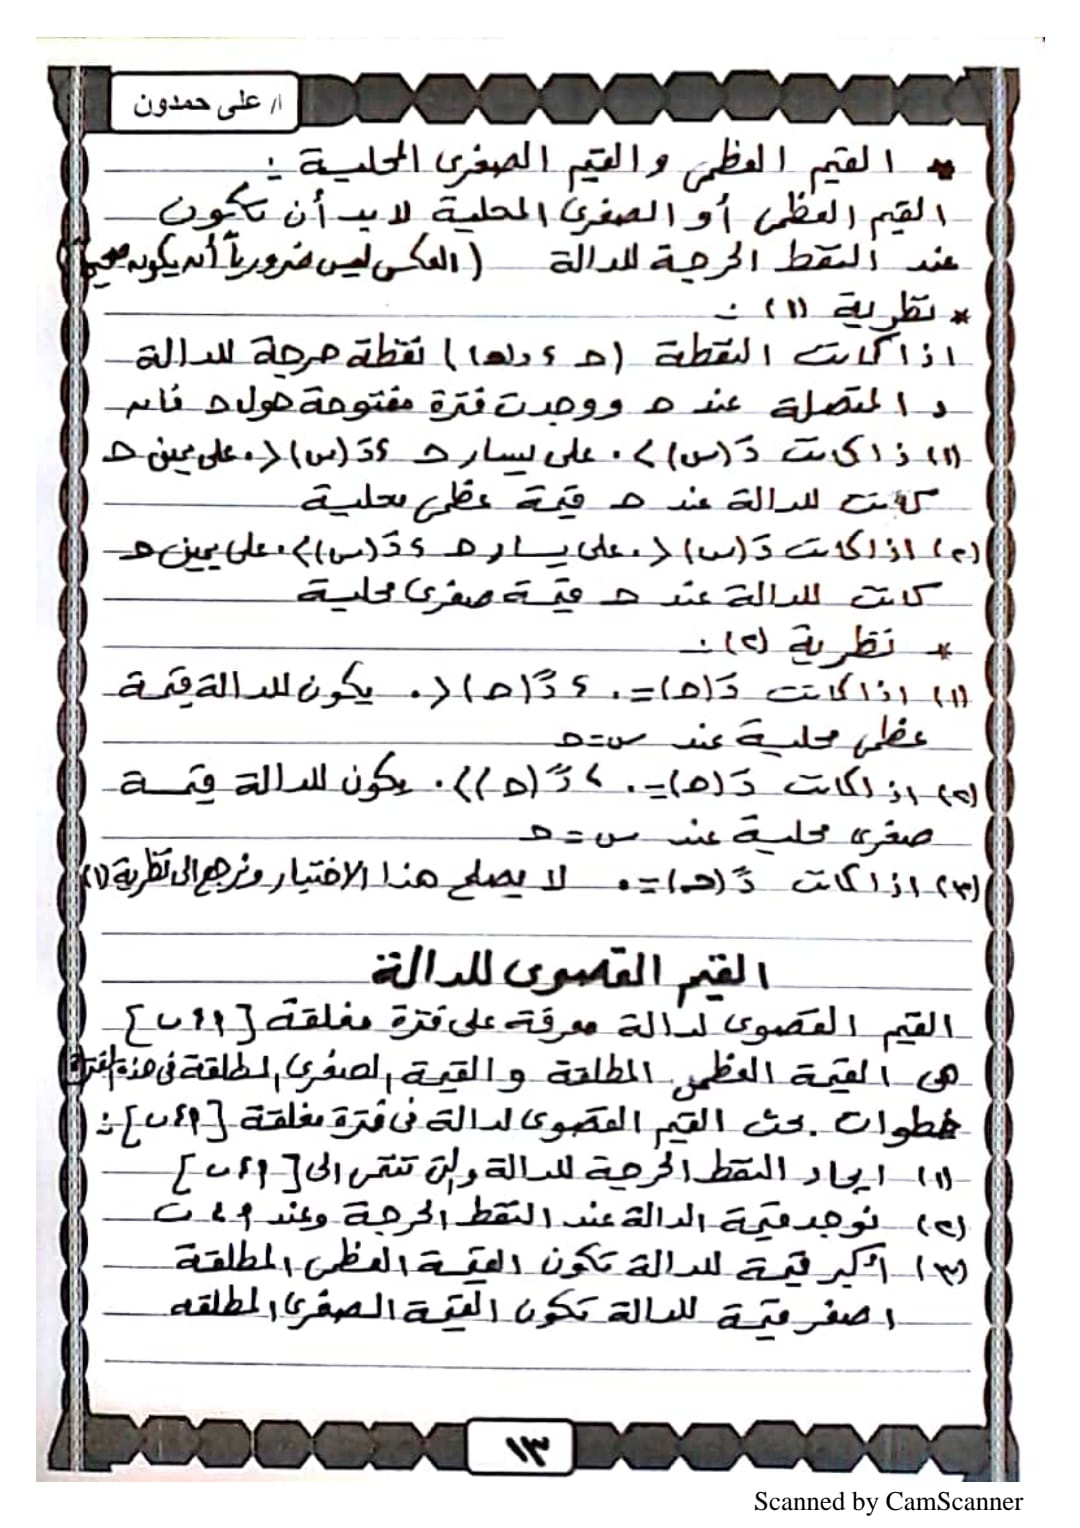 ا/ على حمدون
* القيم العظمى والقيم الصغرى المحلية :
القيم العظمى أو الصغرى المحلية لابد أن تكون
عند النقط الحرجة للدالة (العكس ليس ضرورياً أنه يكون صحيح)
* نظرية (١) :-
اذا كانت النقطة (حـ ، د(حـ)) نقطة حرجة للدالة
د المتصلة عند حـ ووجدت فترة مفتوحة حول حـ فانه
(١) اذا كانت دَ(س) > ٠ على يسار حـ ، دَ(س) < ٠ على يمين حـ
كانت للدالة عند حـ قيمة عظمى محلية
(٢) اذا كانت دَ(س) < ٠ على يسار حـ ، دَ(س) > ٠ على يمين حـ
كانت للدالة عند حـ قيمة صغرى محلية
* نظرية (٢) :-
(١) اذا كانت دَ(حـ) = ٠ ، دً(حـ) < ٠ يكون للدالة قيمة
عظمى محلية عند س = حـ
(٢) اذا كانت دَ(حـ) = ٠ ، دً(حـ) > ٠ يكون للدالة قيمة
صغرى محلية عند س = حـ
(٣) اذا كانت دً(حـ) = ٠ لا يصلح هذا الاختيار ونرجع الى نظرية (١)
القيم القصوى للدالة
القيم القصوى لدالة معرفة على فترة مغلقة [٩ ، ب]
هى القيمة العظمى المطلقة والقيمة الصغرى المطلقة فى هذه الفترة
خطوات بحث القيم القصوى لدالة فى فترة مغلقة [٩ ، ب] :
(١) ايجاد النقط الحرجة للدالة والتى تنتمى الى [٩ ، ب]
(٢) نوجد قيمة الدالة عند النقط الحرجة وعند ٩ ، ب
(٣) اكبر قيمة للدالة تكون القيمة العظمى المطلقة
اصغر قيمة للدالة تكون القيمة الصغرى المطلقه
١٣
Scanned by CamScanner